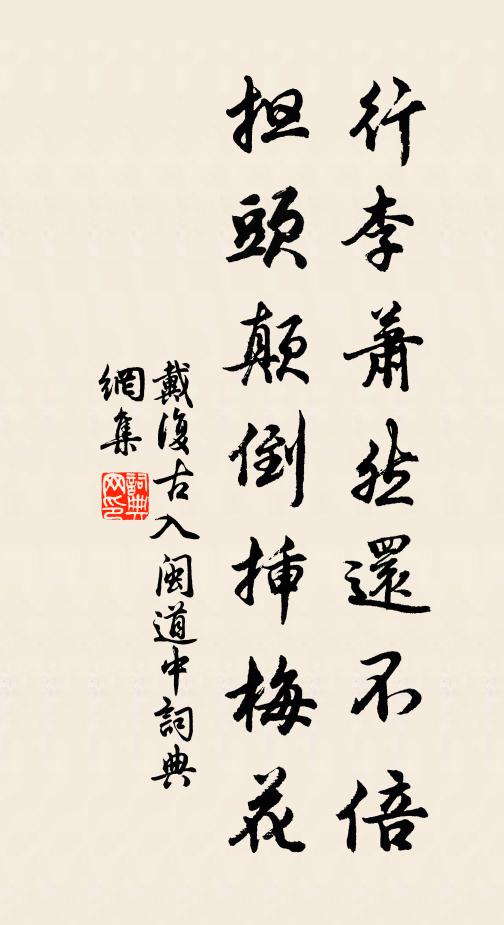 行李蕭然還不倍
担頭顛倒插梅花
戴復古入閩道中詞典
網集
詞典
网印